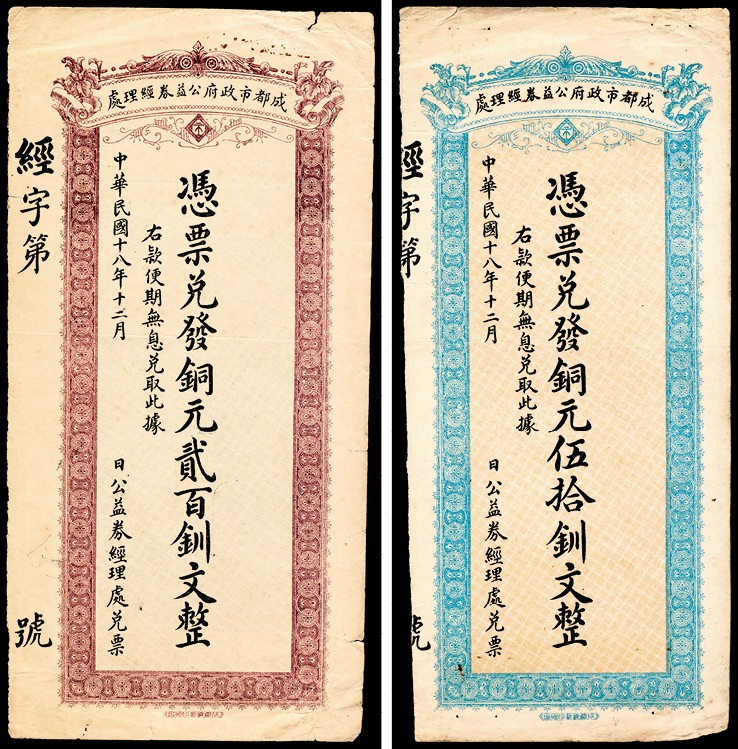 成都市政府公益券經理處
憑票兑發銅元貳百釧文整
右款便期無息兑取此據
中華民國十八年十二月 日公益券經理處兑票
經字第 號
成都市政府公益券經理處
憑票兑發銅元伍拾釧文整
右款便期無息兑取此據
中華民國十八年十二月 日公益券經理處兑票
經字第 號